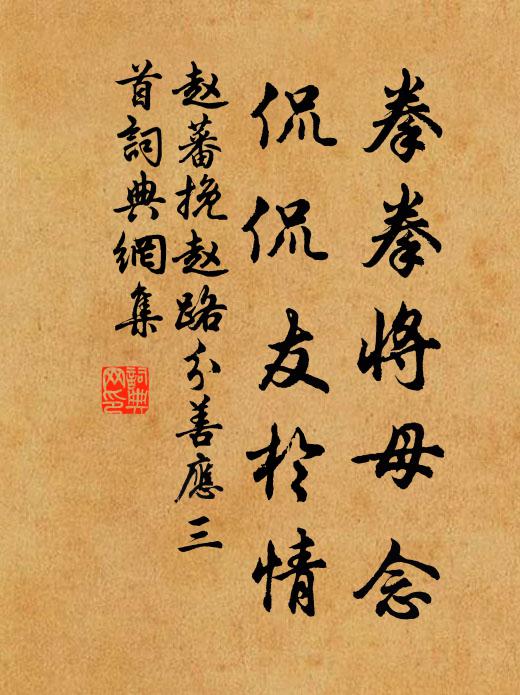 拳拳将母念
侃侃友於情
赵蕃挽赵路分善應三
首詞典網集
詞典
网印